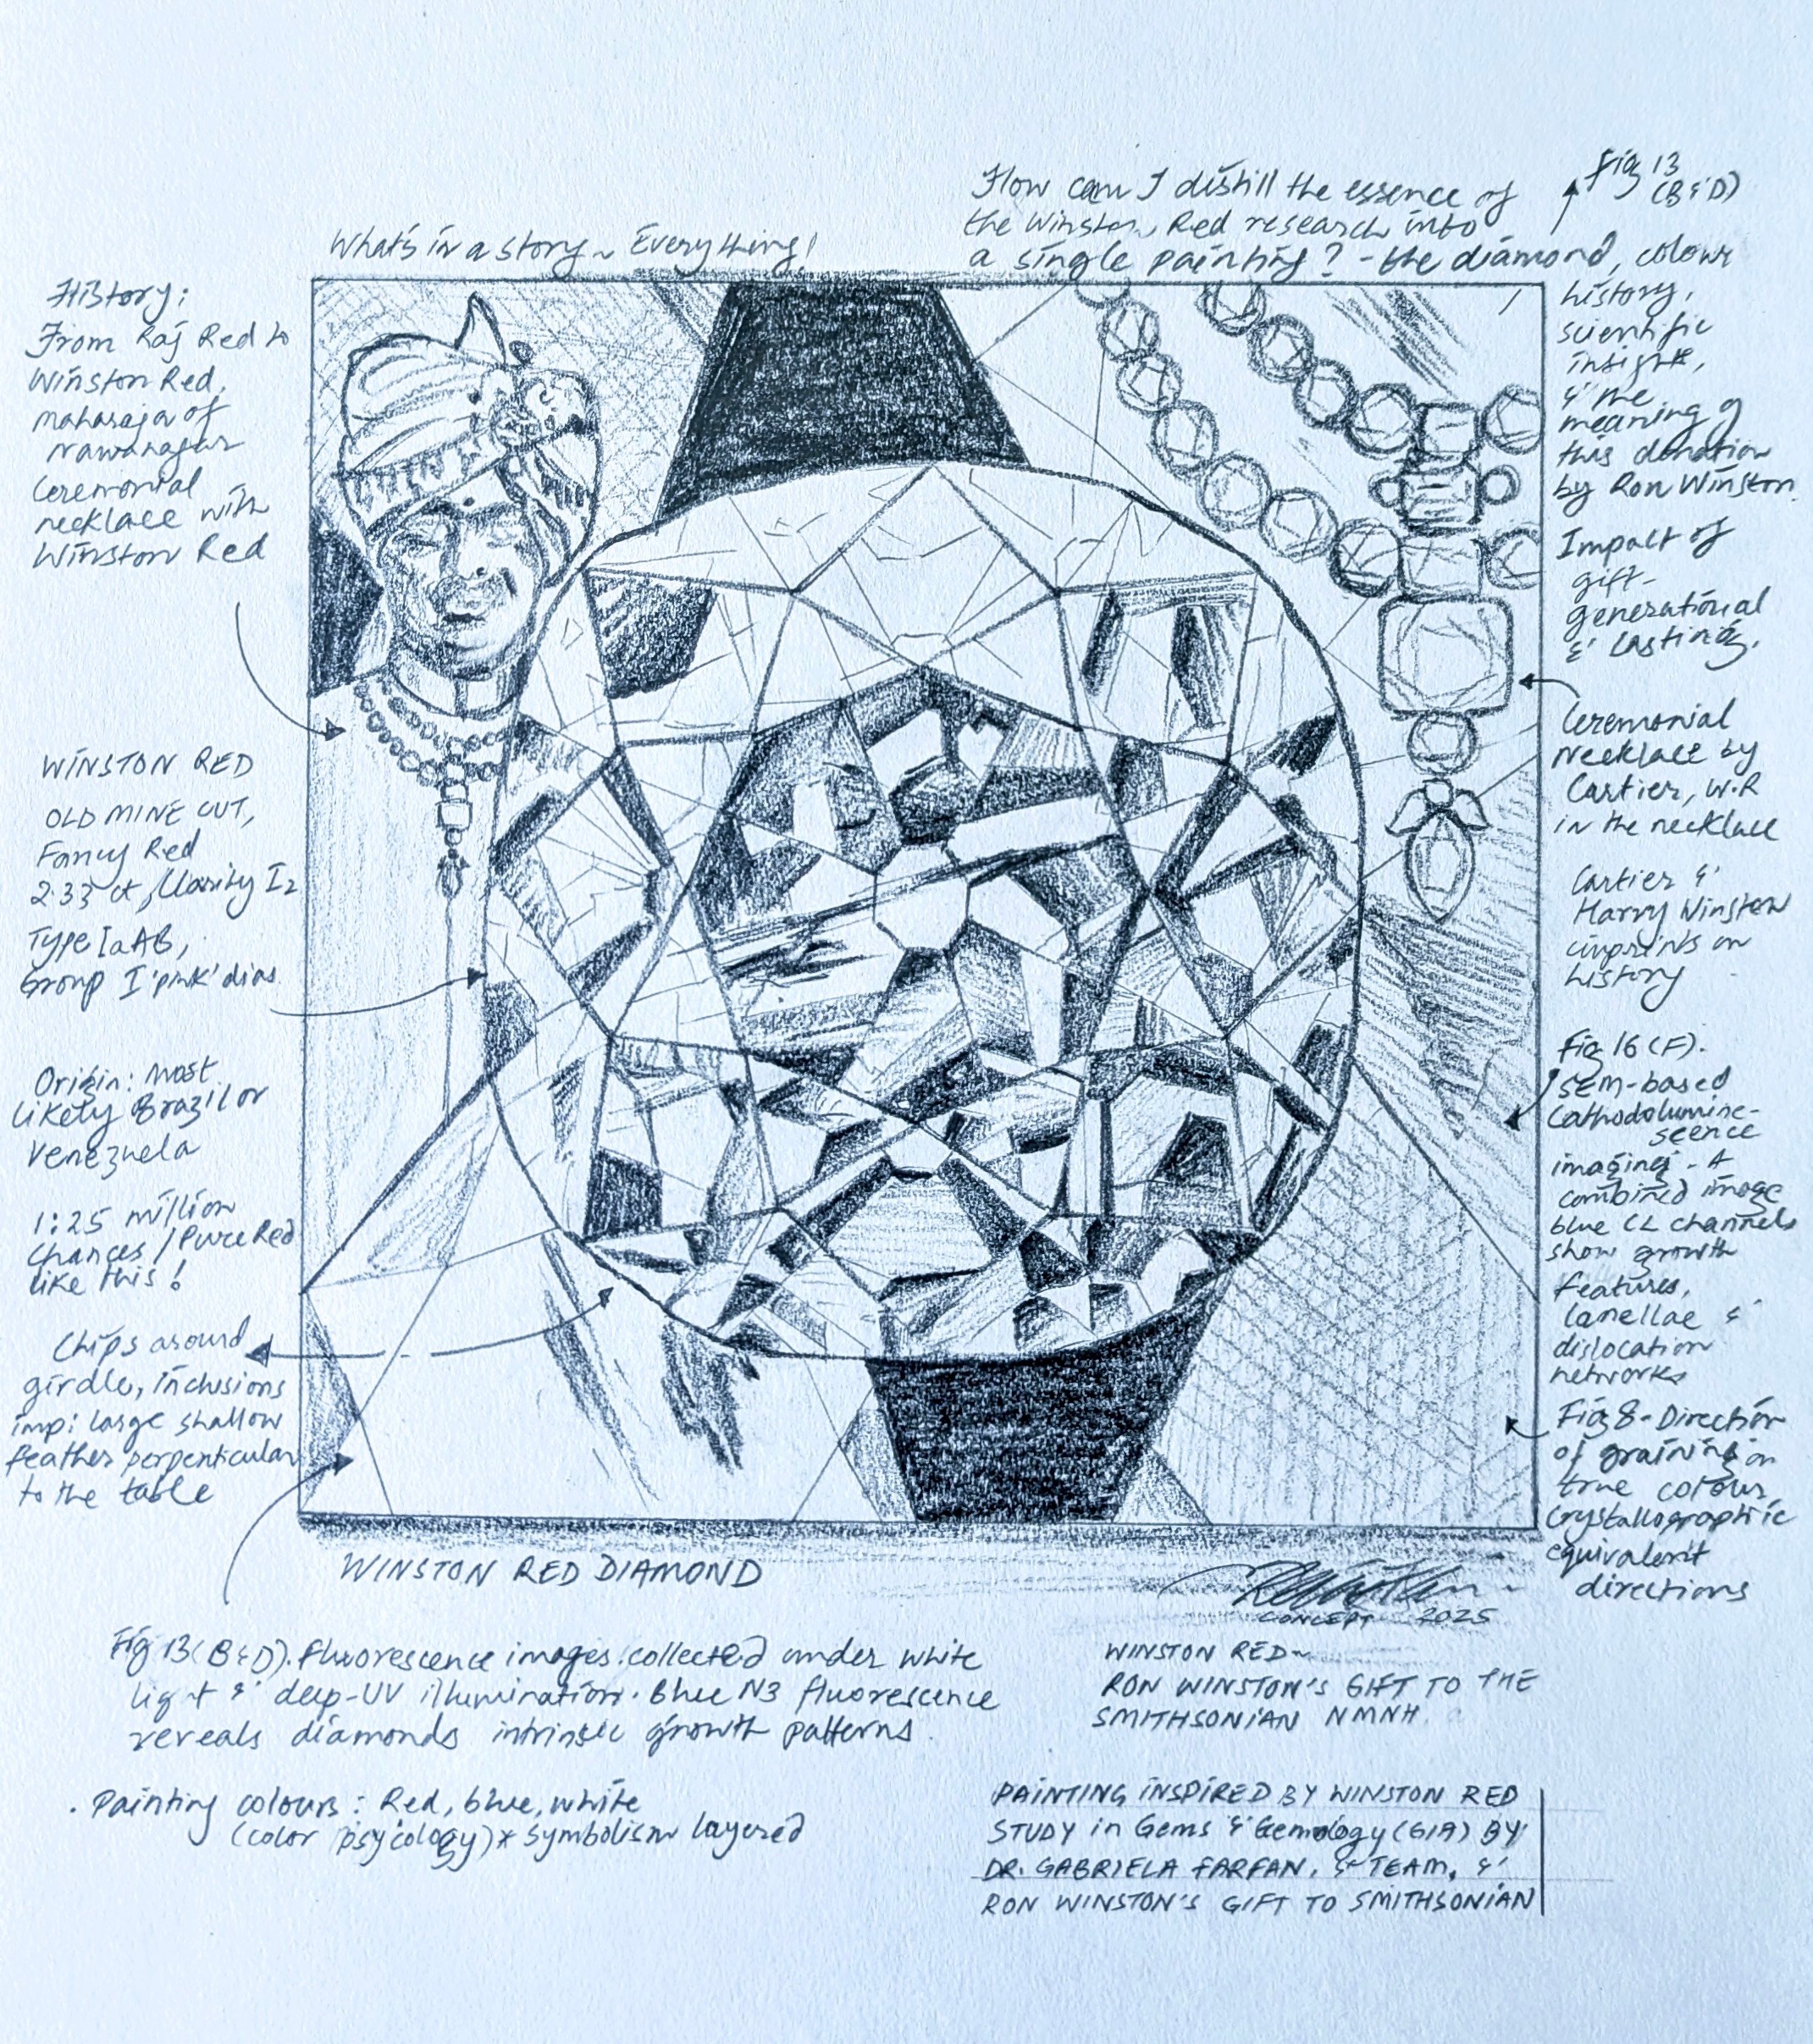 What's in a story ~ Everything!
How can I distill the essence of
the Winston Red research into
a single painting? - the diamond, colour
history,
scientific
insight,
& the
meaning of
this donation
by Ron Winston
Fig 13
(B & D)
Impact of
gift -
generational
& lasting.
Ceremonial
Necklace by
Cartier, W.R
in the necklace
Cartier &
Harry Winston
imprints on
history
Fig 16 (F).
SEM-based
Cathodolumine-
scence
imaging - A
combined image
blue CL channels
show growth
features,
lamellae &
dislocation
networks
Fig 8 - Direction
of graining on
true colour,
crystallographic
equivalent
directions
History:
From Raj Red to
Winston Red,
Maharaja of
Nawanagar
Ceremonial
necklace with
Winston Red
WINSTON RED
OLD MINE CUT,
Fancy Red
2.33 ct, Clarity I2
Type IaAB,
Group I 'pink' dias.
Origin: most
likely Brazil or
Venezuela
1:25 million
chances / Pure Red
like this!
Chips around
girdle, inclusions
imp: large shallow
feather perpenticular
to the table
WINSTON RED DIAMOND
CONCEPT 2025
Fig 13 (B & D). Fluorescence images collected under white
light & deep-UV illumination. Blue N3 fluorescence
reveals diamonds intrinsic growth patterns.
WINSTON RED ~
RON WINSTON'S GIFT TO THE
SMITHSONIAN NMNH.
. Painting colours: Red, blue, white
(color psycology) * Symbolism layered
PAINTING INSPIRED BY WINSTON RED
STUDY in Gems & Gemology (GIA) BY
DR. GABRIELA FARFAN, & TEAM, &
RON WINSTON'S GIFT TO SMITHSONIAN